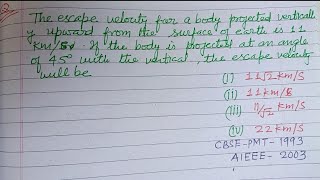 2
The escape velouty for a body projected verticall
y upward from the surface of earth is 11
km/s. If the body is projected at an angle
of 45° with the vertical, the escape velocity
will be
(i) 11√2 km/s
(ii) 11km/s
(iii) 11/√2 km/s
(iv) 22 km/s
CBSE-PMT-1993
AIEEE-2003